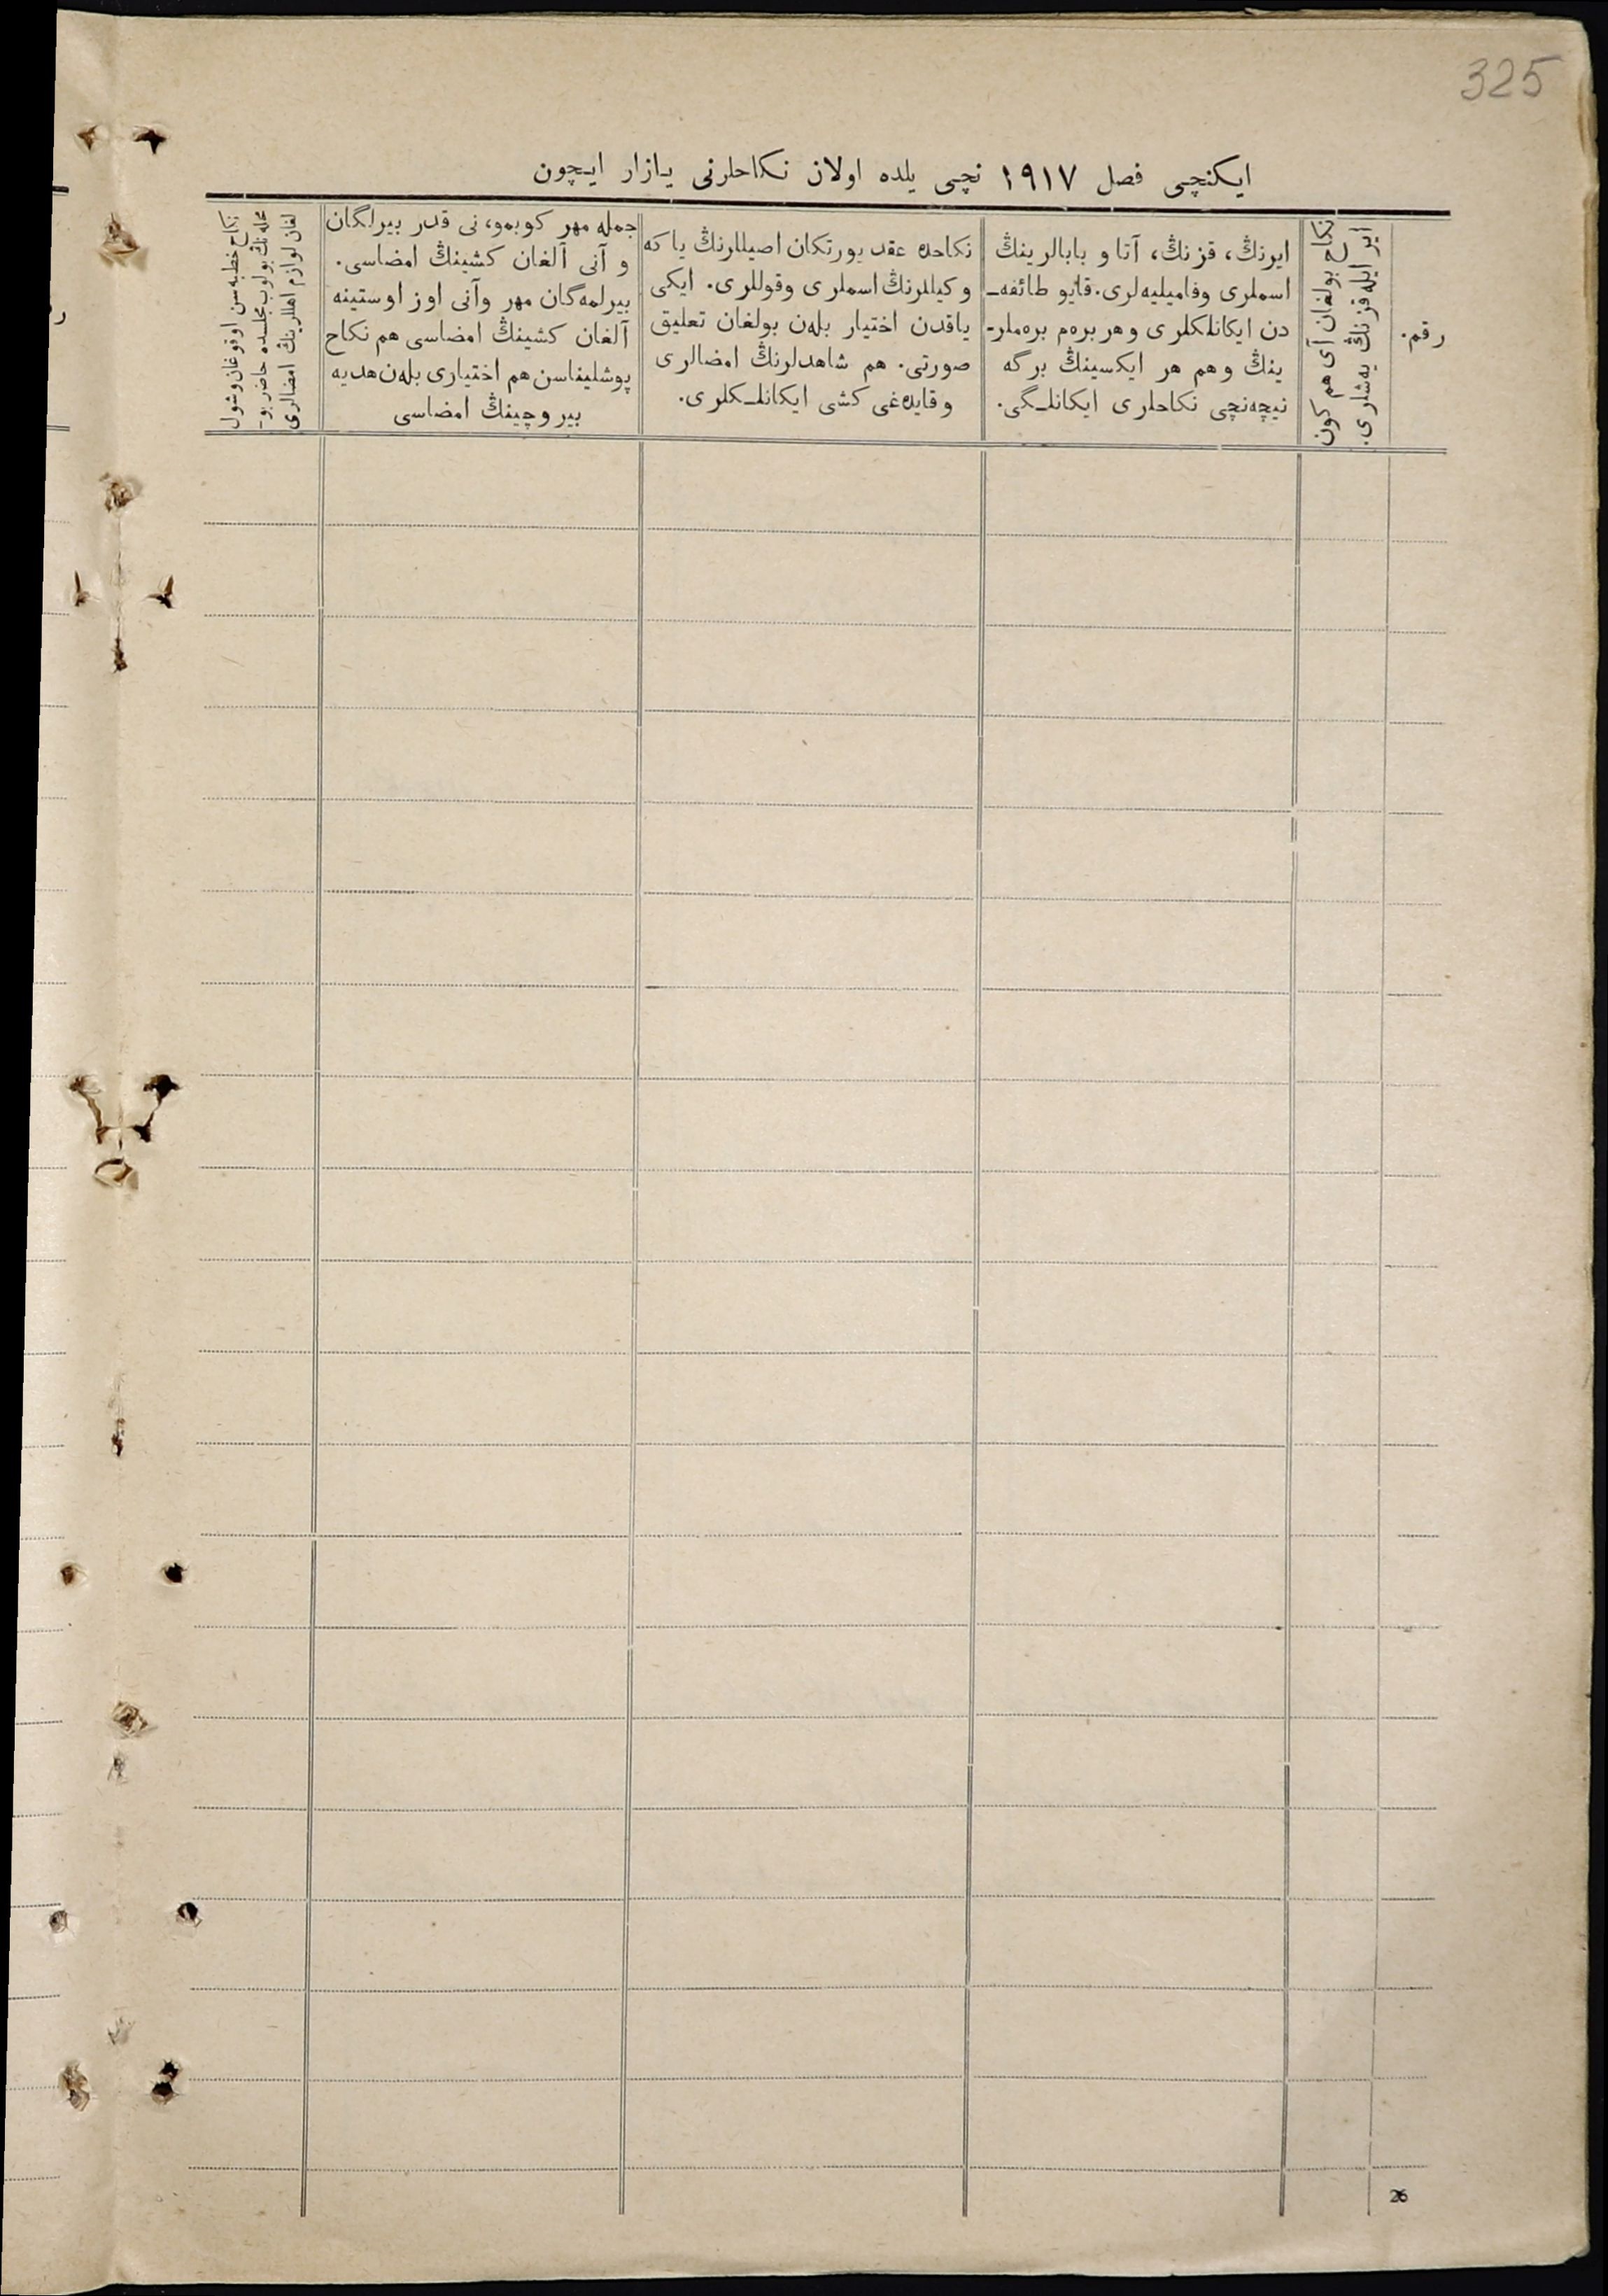 325
ایکنچی فصل ١٩١٧ نچی یلده اولان نکاحلرنی یازار ایچون
رقم.
نکاح بولغان آی هم کون
ایر ایله قزنڭ یه‌شلری.
ایرنڭ، قزنڭ، آتا و بابالرینڭ
اسملری وفامیلیه‌لری. قایو طائفه‌ـ
دن ایکانلکلری وهر بره‌م بره‌ملرـ
ینڭ وهم هر ایکسینڭ برگه
نیچه‌نچی نکاحلری ایکانلـگی.
نکاحده عقد یورتکان اصیللرنڭ یاکه
وکیللرنڭ اسملری وقوللری. ایکی
یاقدن اختیار بله‌ن بولغان تعلیق
صورتی. هم شاهدلرنڭ امضالری
وقایده‌غی کشی ایکانلـکلری.
جمله مهر کوبمو، نی قدر بیرلگان
و آنی آلغان کشینڭ امضاسی.
بیرلمه‌گان مهر وآنی اوز اوستینه
آلغان کشینڭ امضاسی هم نکاح
پوشلیناسن هم اختیاری بله‌ن هدیه
بیروچینڭ امضاسی
نکاح خطبه‌سن اوقوغان وشول
محله‌نڭ بولوب مجلسده حاضر بوـ
لغان لوازم اهللرینڭ امضالری
26